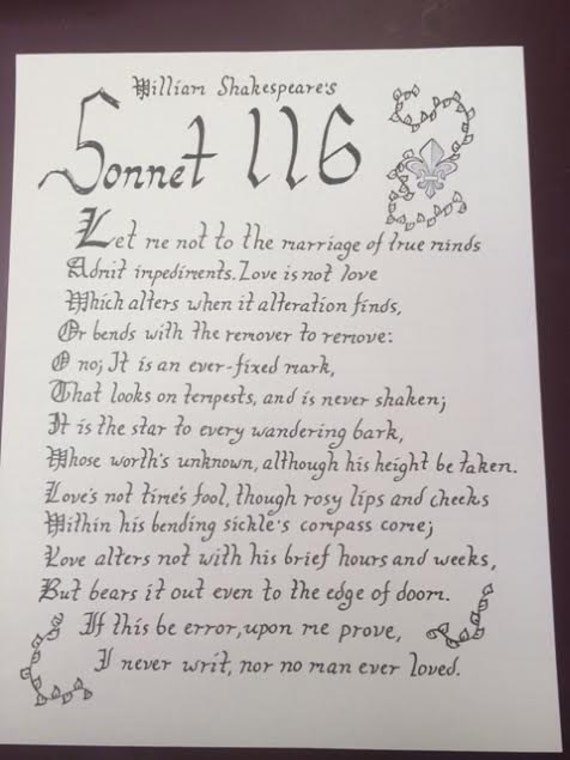 William Shakespeare's
Sonnet 116
Let me not to the marriage of true minds
Admit impediments. Love is not love
Which alters when it alteration finds,
Or bends with the remover to remove:
O no; It is an ever-fixed mark,
That looks on tempests, and is never shaken;
It is the star to every wandering bark,
Whose worth's unknown, although his height be taken.
Love's not time's fool, though rosy lips and cheeks
Within his bending sickle's compass come;
Love alters not with his brief hours and weeks,
But bears it out even to the edge of doom.
If this be error, upon me prove,
I never writ, nor no man ever loved.